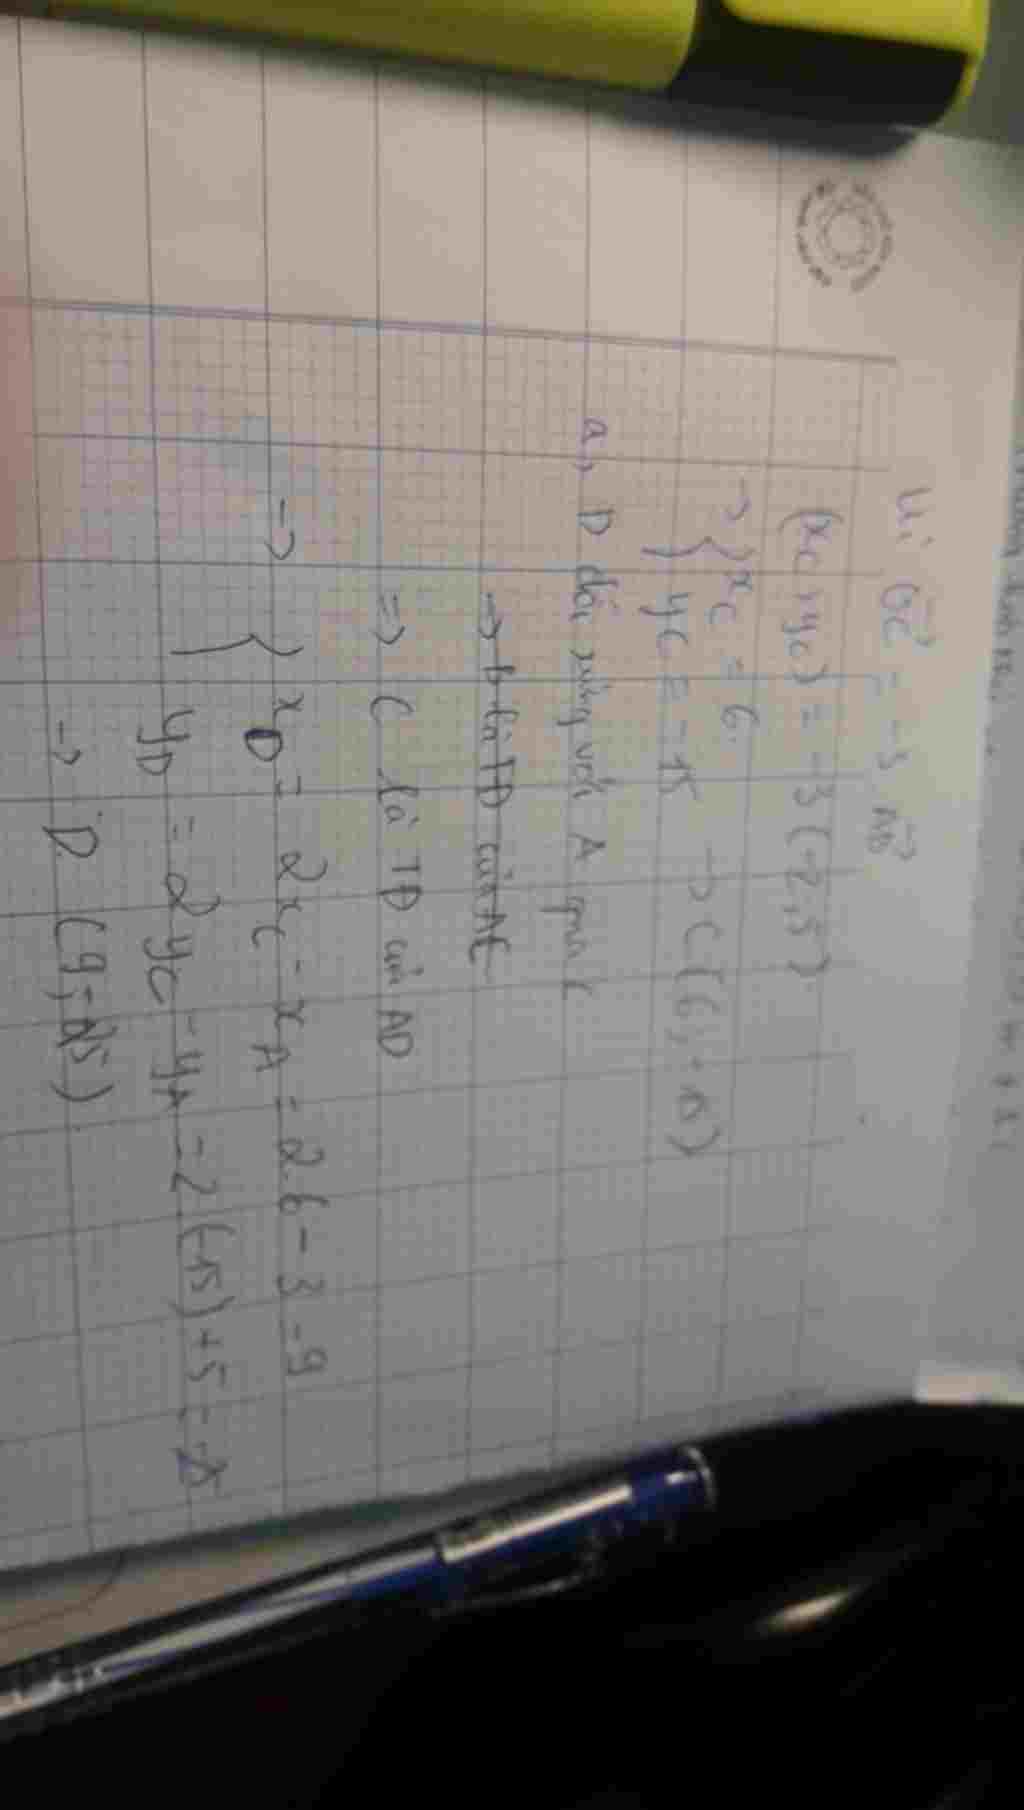 Vì OC = -3 AB
(xc, yc) = -3(-2, 5)
→ { xc = 6
yc = -15 → C(6; -15)
a, D đối xứng với A qua C
→ B là TĐ của AC
=> C là TĐ của AD
→ { xD = 2xC - xA = 2.6 - 3 = 9
yD = 2yC - yA = 2(-15) + 5 = -25
→ D (9; -25)